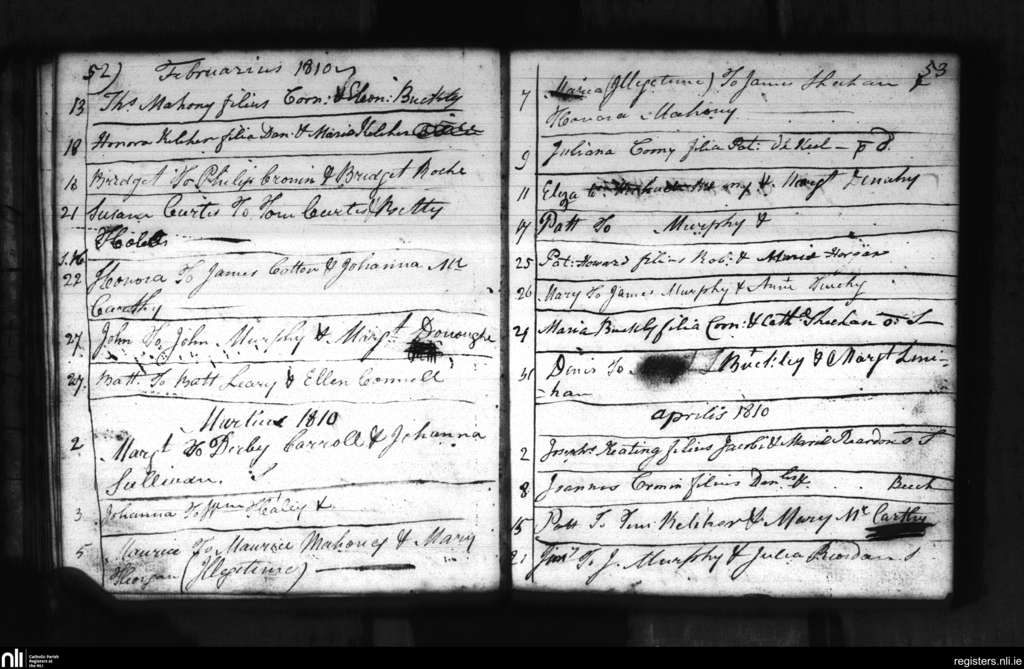 52) Februarius 1810
13 Thos Mahony filius Corn: & Eleon: Buckly
18 Honora Keliher filia Dan: & Maria Keliher
18 Bridget To Philip Cronin & Bridget Roche
21 Susana Curtis To Tom Curtis & Betty
22 Honora To James Cotton & Johanna Mc
Carthy
27. John To John Murphy & Margt. Donoughe
27. Batt. To Batt Leary & Ellen Connell
Martius 1810
2 Margt To Derby Carroll & Johanna
Sullivan.
3 Johanna To Wm Healey &
5 Maurice To Maurice Mahoney & Mary
Horgan (Illegetime)
53
7 Maria (Illegetime) To James Sheehan &
Honora Mahony
9 Juliana Comy filia Pat:
11 Eliza & Margt Denahy
17 Patt To Murphy &
25 Pat: Howard filius Rob: & Maria Horgan
26 Mary To James Murphy & Ann
29 Maria Buckly filia Corn: & Cath: Sheehan
31 Denis To Buckley & Margt Line-
han
Aprilis 1810
2 Josephs Keating filius Jacobi & Maria Reardon
8 Joannes Cronin filius Danlis & Buck
15 Patt To Tim Keliher & Mary Mc Carthy
21 Jno. To J. Murphy & Julia Riordan
nli
Catholic Parish
Registers at
the NLI
registers.nli.ie